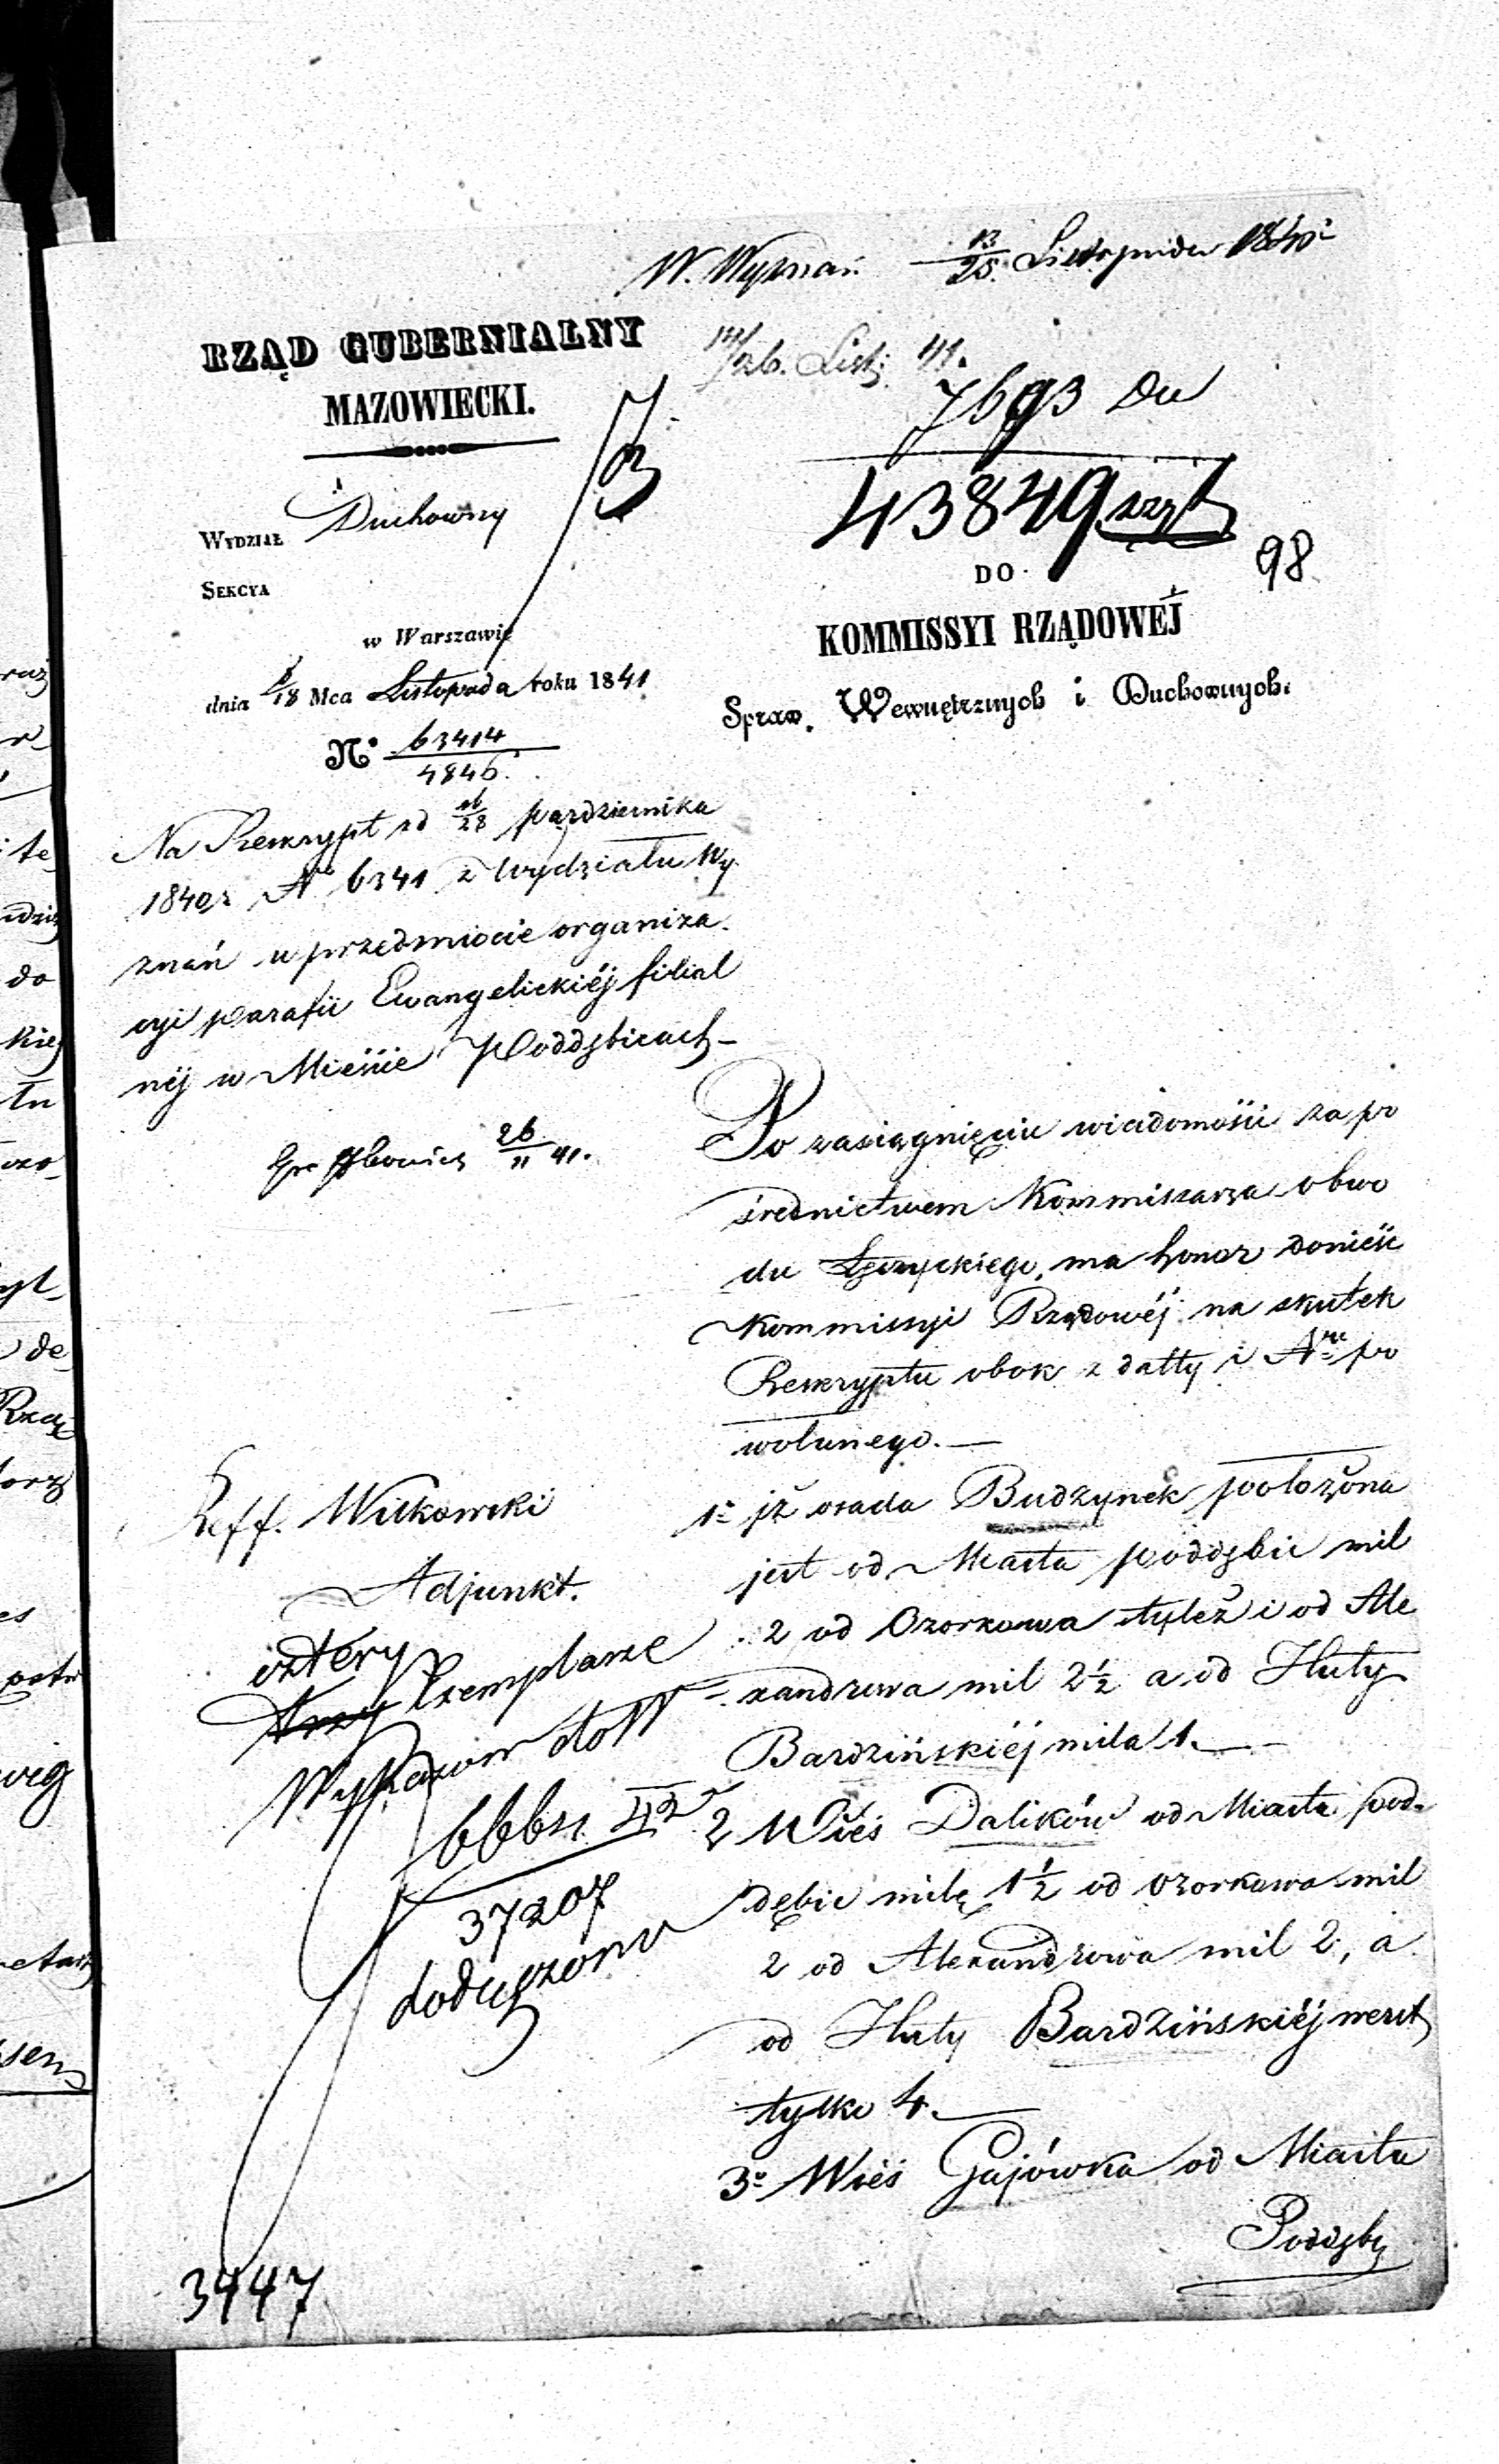 W. Wyznań 13/25 Listopada 184
26. List. 41.
7693 Du
43849
98
RZĄD GUBERNIALNY
MAZOWIECKI.
WYDZIAŁ Duchowny
SEKCYA
w Warszawie
dnia 6/18 Mca Listopada roku 1841
No 63414
4846.
DO
KOMMISSYI RZĄDOWÉJ
Spraw. Wewnętrznych i Duchownych.
Na Reskrypt z d 16/28 października
1840 r No 6341 z Wydziału Wy
znań w przedmiocie organiza
cyi parafii Ewangelickiéj filial
néj w Mieście Poddębicach
26/11 41.
Po zasiągnięciu wiadomości za po
średnictwem Kommissarza obwo
du Łęczyckiego, ma honor donieść
Kommissyi Rządowéj na skutek
Reskryptu obok z datty i Nru po
wołanego.—
1o iż osada Budzynek położona
jest od Miasta Poddębic mil
2 od Ozorkowa tyleż i od Ale
xandrowa mil 2½ a od Huty
Bardzińskiéj mila 1.—
2 Wieś Dalików od Miasta Pod
dębic milę 1½ od Ozorkowa mil
2 od Alexandrowa mil 2, a
od Huty Bardzińskiéj werst
tylko 4.—
3o Wieś Gajówka od Miasta
Poddęb
Reff. Witkowski
Adjunkt.
cztery
trzy Exemplarze
Wykazów do W
37207
dołączono
3447